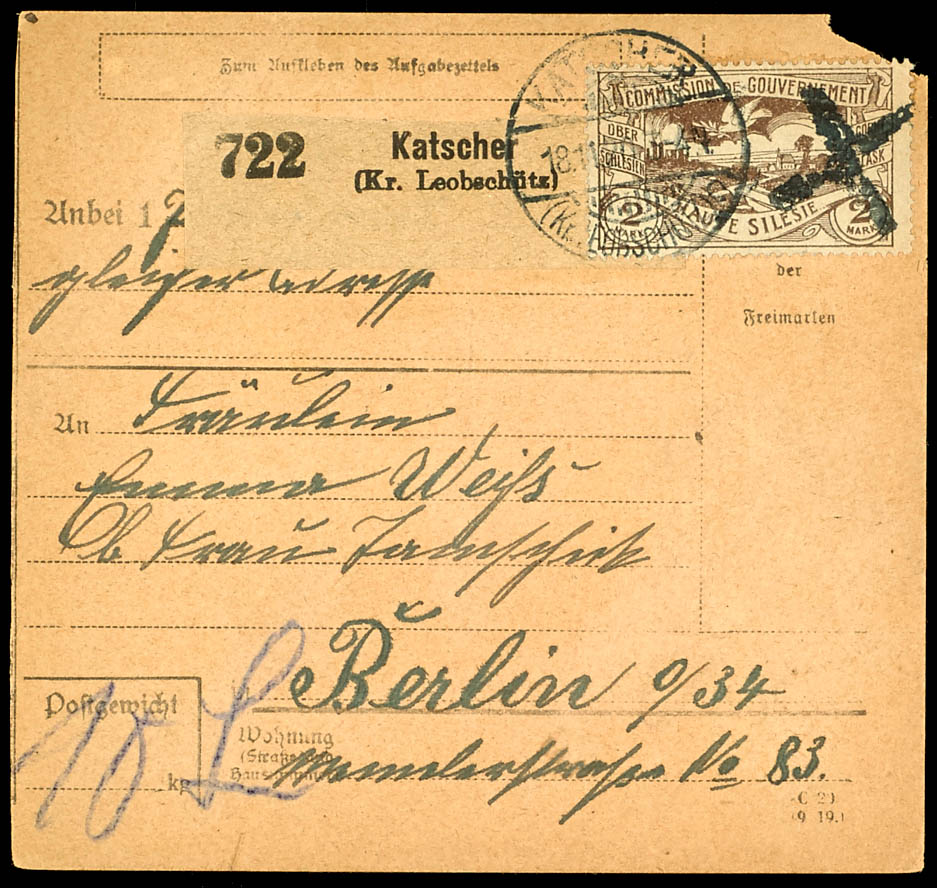 Zum Aufkleben des Aufgabezettels
722 Katscher
(Kr. Leobschütz)
KATSCHER
18.11.
(Kr. LEOBSCHÜTZ)
COMMISSION DE GOUVERNEMENT
OBER
SCHLESIEN
HAUTE SILESIE
2 MARK
2 MARK
Anbei 1
der
Freimarken
An Fräulein
Emma Weiß
Frau
Berlin O/34
Postgewicht
kg
Wohnung
(Straße und
No 83.
C 29
(9. 19.)